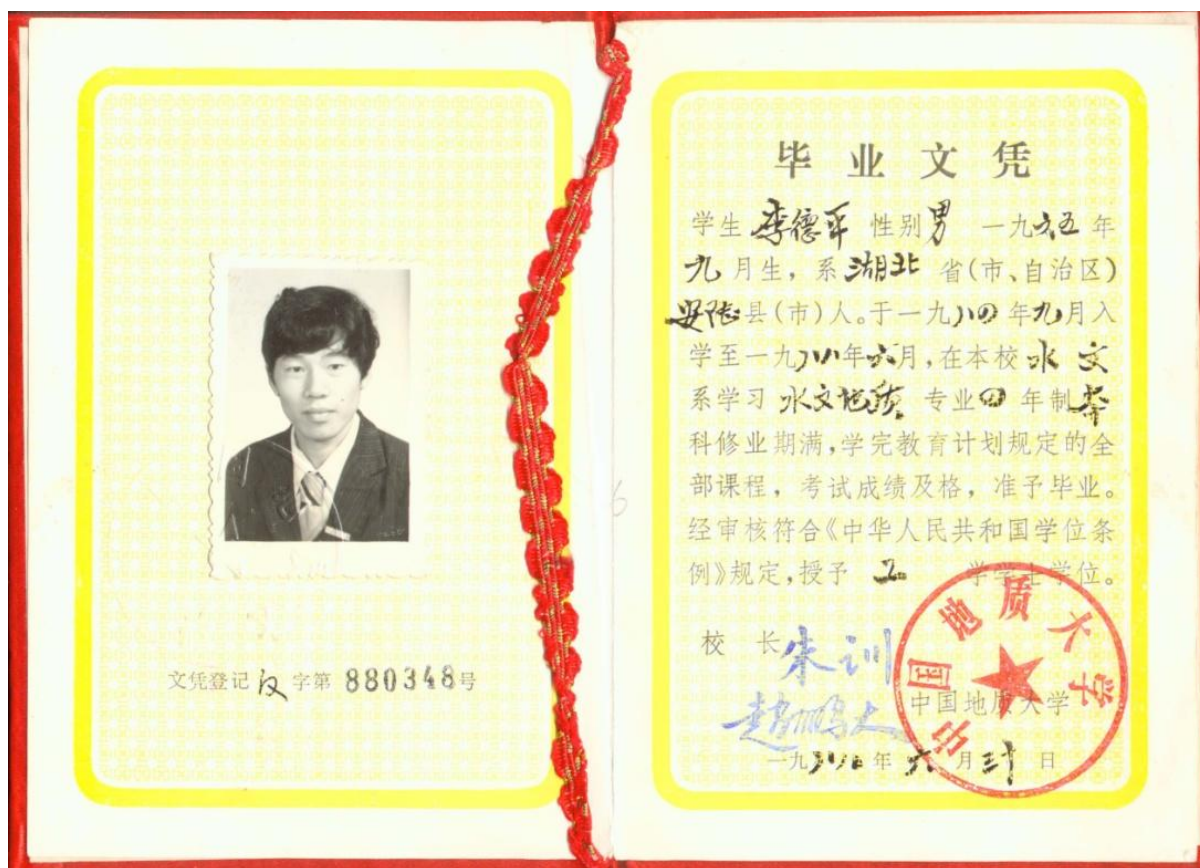 文凭登记汉字第880348号
毕业文凭
学生 李德平 性别男 一九六五年
九月生，系 湖北 省(市、自治区)
安陆县(市)人。于一九八四年九月入
学至一九八八年六月，在本校 水文
系学习 水文地质 专业四年制本
科修业期满，学完教育计划规定的全
部课程，考试成绩及格，准予毕业。
经审核符合《中华人民共和国学位条
例》规定，授予 工 学学士学位。
校长 朱训
赵鹏大
中国地质大学
中国地质大学
一九八八年六月三十日